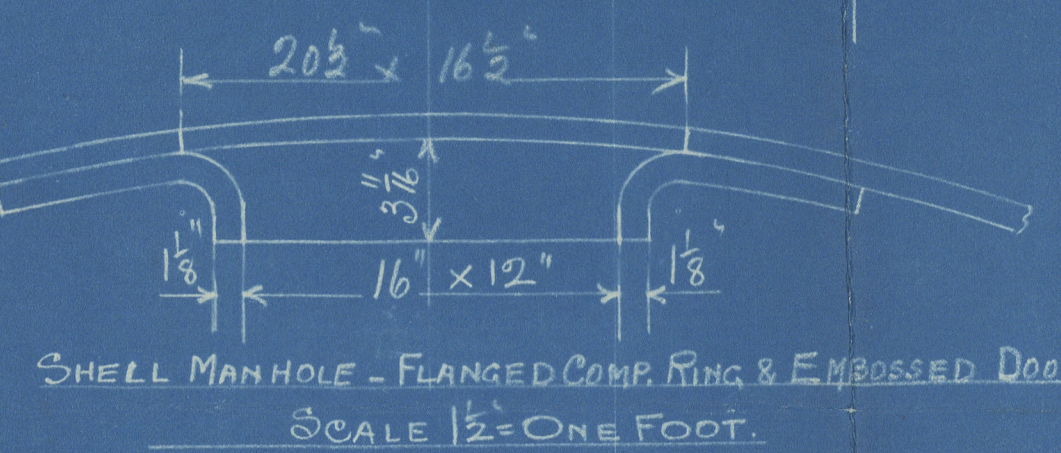 20½" × 16½"
3 11/16"
1⅛" 16" × 12" 1⅛"
SHELL MANHOLE - FLANGED COMP. RING & EMBOSSED DOO
SCALE 1½" = ONE FOOT.